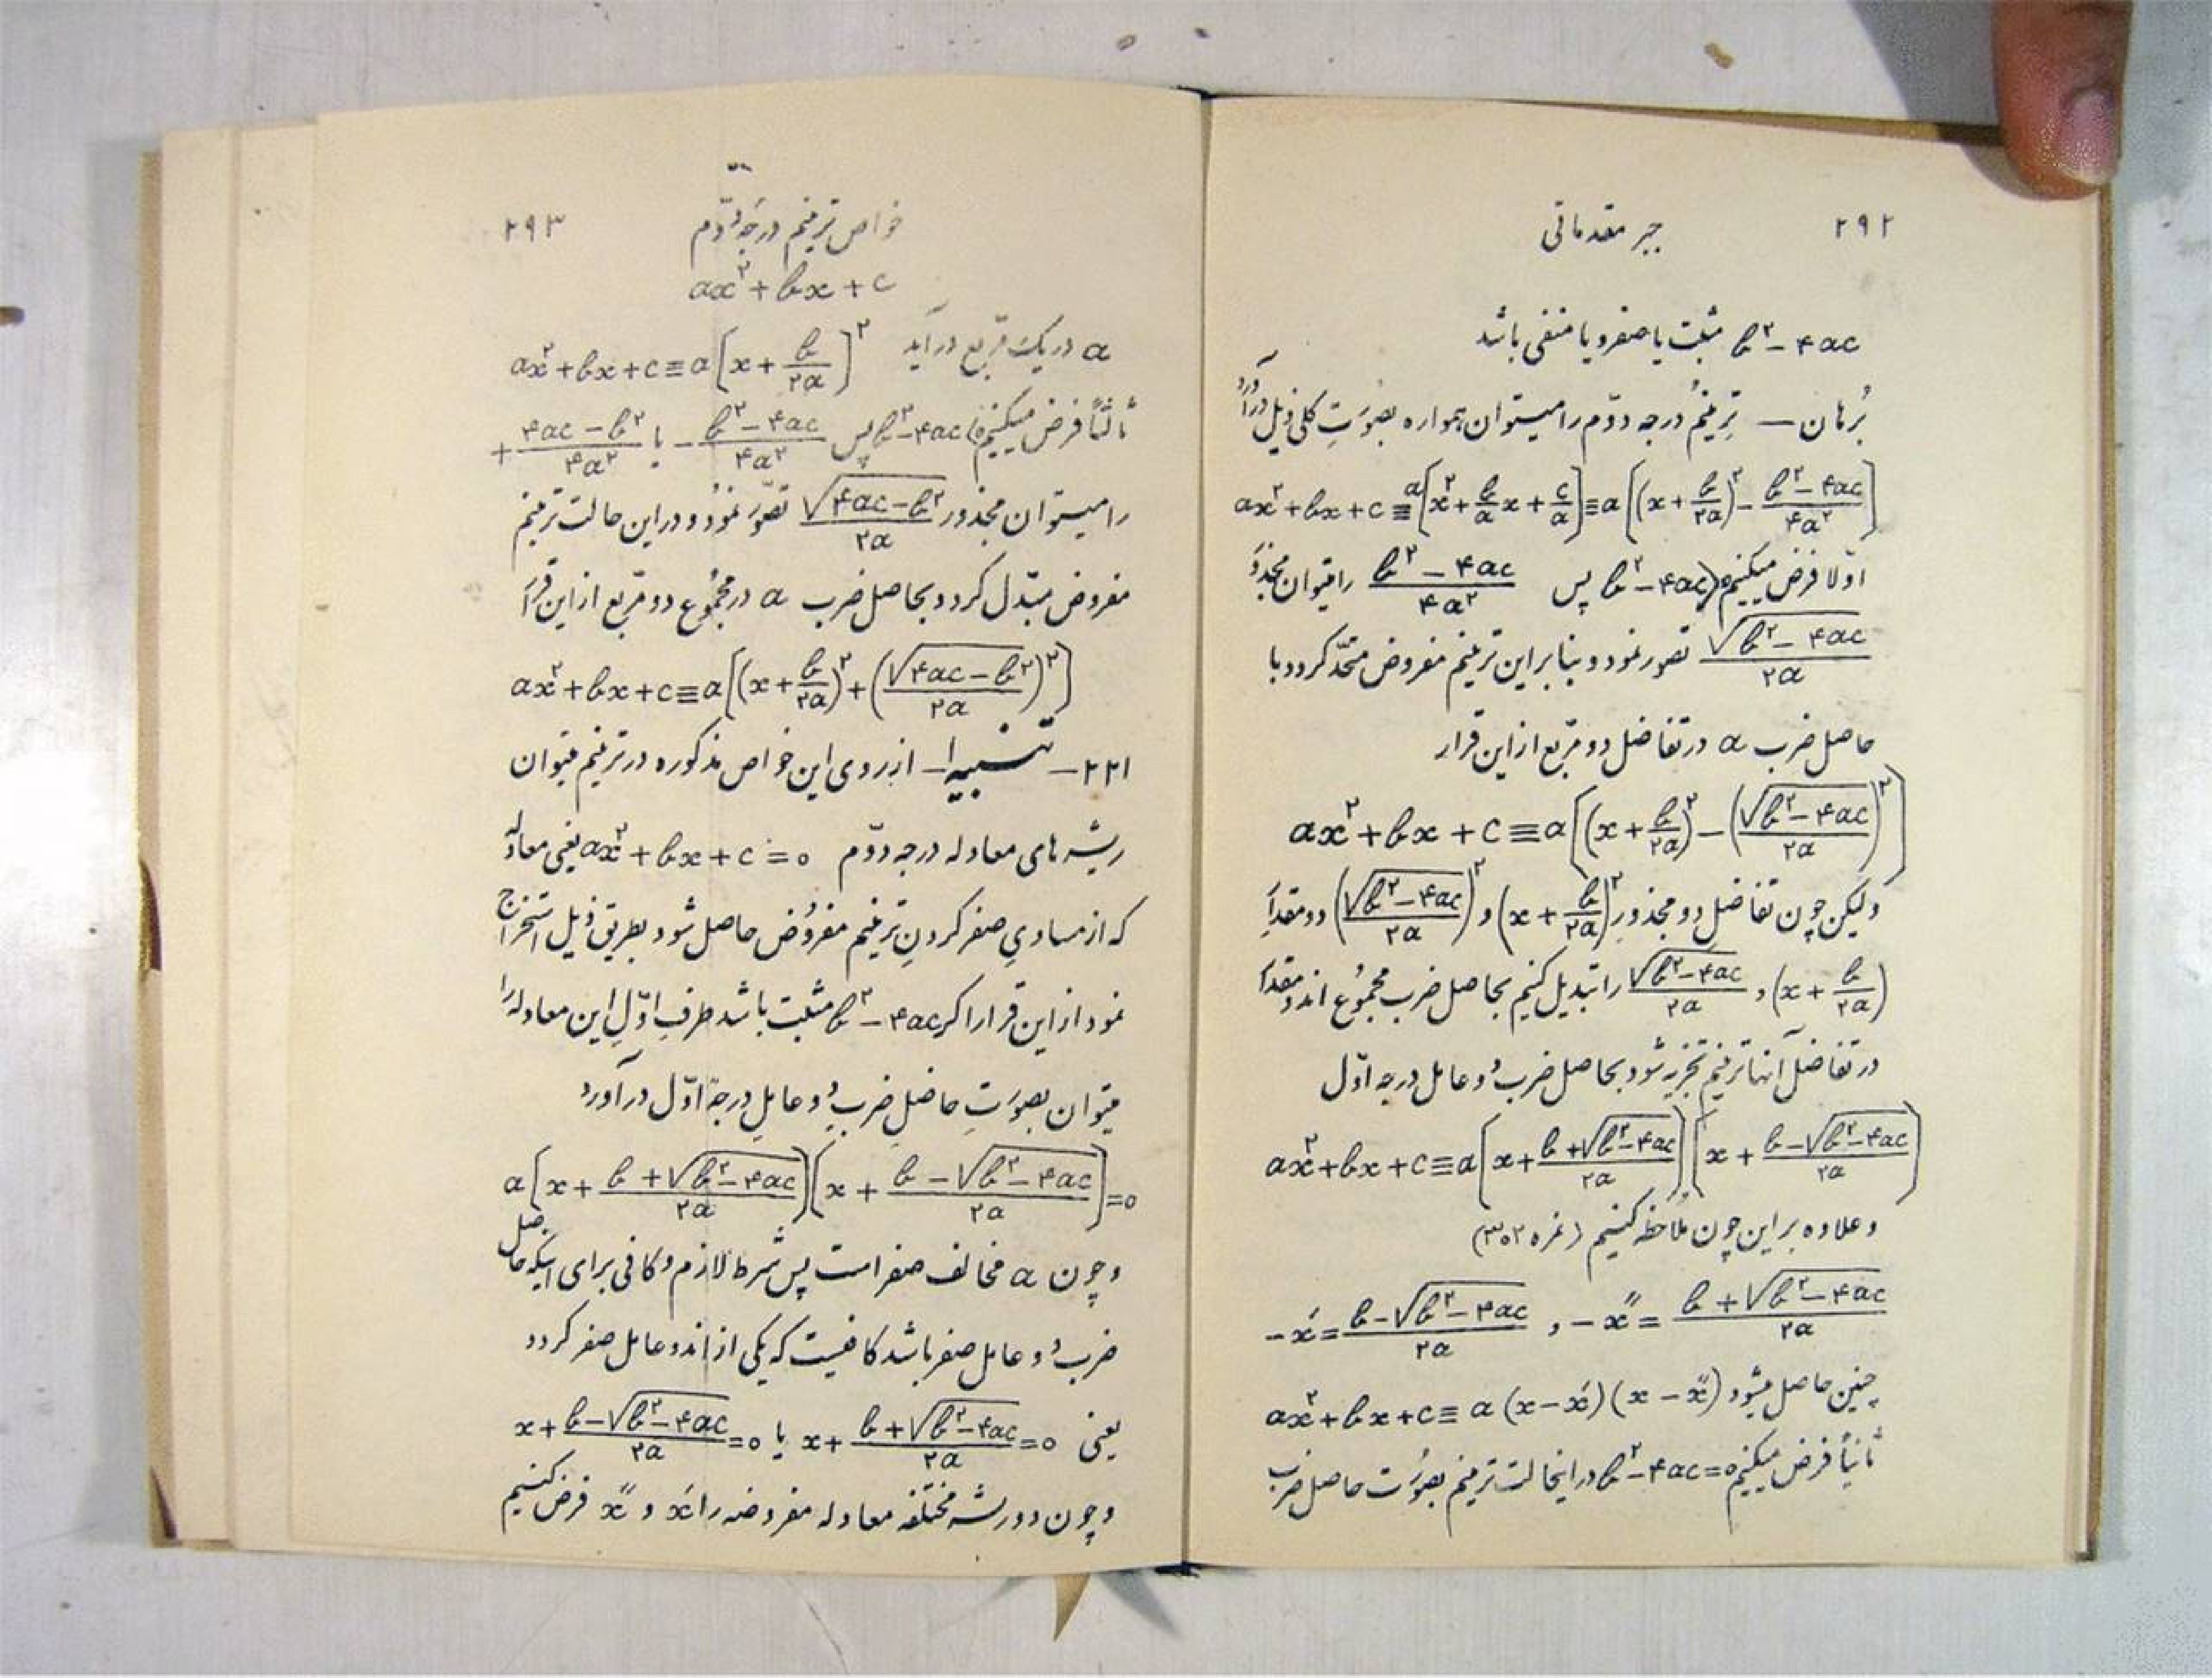 ۲۹۲
جبر مقدماتی
b²-۴ac مثبت یا صفر و یا منفی باشد
بُرهان — تِرینُم درجه دوّم را میتوان همواره بصورَتِ کلی ذیل درآورد
ax²+bx+c≡a[x²+b/a x+c/a]≡a[(x+b/۲a)²-(b²-۴ac)/۴a²]
اوّلا فرض میکنیم b²-۴ac>۰ پس (b²-۴ac)/۴a² را میتوان مجذور
√(b²-۴ac)/۲a تصوّر نمود و بنابراین ترینم مفروض متحّد گردد با
حاصل ضرب a در تفاضل دو مربّع از این قرار
ax²+bx+c≡a[(x+b/۲a)²-(√(b²-۴ac)/۲a)²]
ولیکن چون تفاضل دو مجذورِ (x+b/۲a)² و (√(b²-۴ac)/۲a)² دو مقدار
(x+b/۲a) و √(b²-۴ac)/۲a را تبدیل کنیم بحاصل ضرب مجموُع اندو مقدار
در تفاضل آنها ترینم تجزیه شود بحاصل ضرب دو عامل درجه اوّل
ax²+bx+c≡a[x+(b+√(b²-۴ac))/۲a][x+(b-√(b²-۴ac))/۲a]
و علاوه بر این چون ملاُحظه کنیم (نمره ۳۰۲)
-x′=(b-√(b²-۴ac))/۲a و -x″=(b+√(b²-۴ac))/۲a
چنین حاصل میشود ax²+bx+c≡a(x-x′)(x-x″)
ثانیاً فرض میکنیم b²-۴ac=۰ در اینحالت ترینم بصوُرت حاصل ضرب
خواص ترینم درجه دوّم
۲۹۳
ax²+bx+c
a در یک مربّع درآید ax²+bx+c≡a[x+b/۲a]²
ثالثاً فرض میکنیم b²-۴ac<۰ پس -(b²-۴ac)/۴a² یا +(۴ac-b²)/۴a²
را میتوان مجذور √(۴ac-b²)/۲a تصوّر نموُد و در این حالت ترینم
مفروض مبتدّل گردد بحاصل ضرب a در مجموُع دو مربّع از این قرار
ax²+bx+c≡a[(x+b/۲a)²+(√(۴ac-b²)/۲a)²]
۲۲۱— تنبیه ۱- از روی این خواص مذکوره در ترینم میتوان
ریشه های معادله درجه دوّم ax²+bx+c=۰ یعنی معادله
که از مساویِ صفر کردنِ ترینم مفروُض حاصل شود بطریق ذیل استخراج
نمود از این قرار اگر b²-۴ac مثبت باشد طرف اوّلِ این معادله را
میتوان بصورَتِ حاصلِ ضربِ دو عاملِ درجهٔ اوّل درآورد
a[x+(b+√(b²-۴ac))/۲a][x+(b-√(b²-۴ac))/۲a]=۰
و چون a مخالف صفر است پس شرط لازم و کافی برای اینکه حاصل
ضرب دو عامل صفر باشد کافیست که یکی از اندو عامل صفر گردد
یعنی x+(b+√(b²-۴ac))/۲a=۰ یا x+(b-√(b²-۴ac))/۲a=۰
و چون دو ریشه مختلفه معادله مفروضه را x′ و x″ فرض کنیم